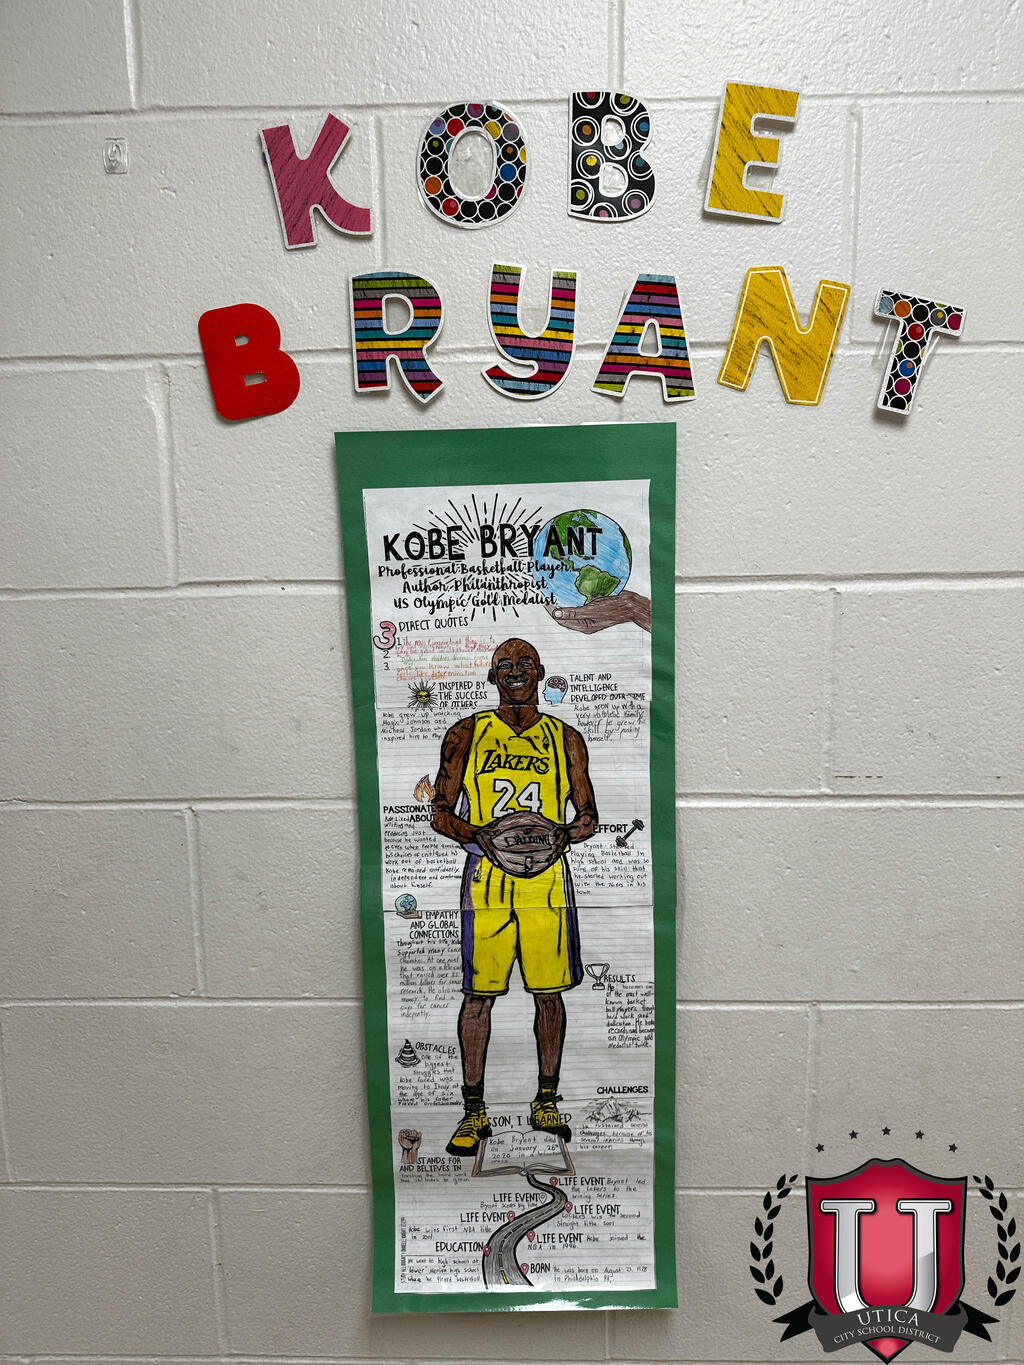 KOBE
BRYANT
KOBE BRYANT
Professional Basketball Player,
Author, Philanthropist,
US Olympic Gold Medalist
3 DIRECT QUOTES
1. The most important thing is to
2.
3.
INSPIRED BY
THE SUCCESS
OF OTHERS
Kobe grew up watching
Magic Johnson and
Michael Jordan which
inspired him to play.
TALENT AND
INTELLIGENCE
DEVELOPED OVER TIME
Kobe grew up with a
very athletic family
however he grew his
skill by pushing
himself.
LAKERS
24
SPALDING
PASSIONATE
ABOUT
Kobe liked
writing and
producing just
because he wanted
when people
his choices of
work out of basketball
Kobe remained confidently
independent and
about himself.
EFFORT
Bryant started
playing Basketball in
high school and was so
sure of his skill that
he started working out
with the 76ers in his
town.
EMPATHY
AND GLOBAL
CONNECTIONS
Throughout his life, Kobe
supported many cancer
charities. At one point
he was on a
that raised over 81
million dollars for
research. He also
money to find a
cure for cancer
RESULTS
He becomes one
of the most well-
known basket
ball players though
hard work and
dedication. He broke
records and became
an Olympic gold
medalist twice.
OBSTACLES
One of the
biggest
struggles that
Kobe faced was
moving to Italy at
the age of six
where his father
played professionally
CHALLENGES
He sustained several
challenges because of his
injuries though
his career.
LESSON, I LEARNED
Kobe Bryant died
on January 26th
2020 in a
STANDS FOR
AND BELIEVES IN
LIFE EVENT Bryant led
the Lakers to the
winning series.
LIFE EVENT
LIFE EVENT
Lakers win the second
straight title 2001
LIFE EVENT
Kobe wins first NBA title
in 2001
LIFE EVENT Kobe joined the
NBA in 1996.
EDUCATION
He went to high school at
lower Merion high school
where he played basketball
BORN he was born on August 23, 1978
in Philadelphia PA.
U
UTICA
CITY SCHOOL DISTRICT